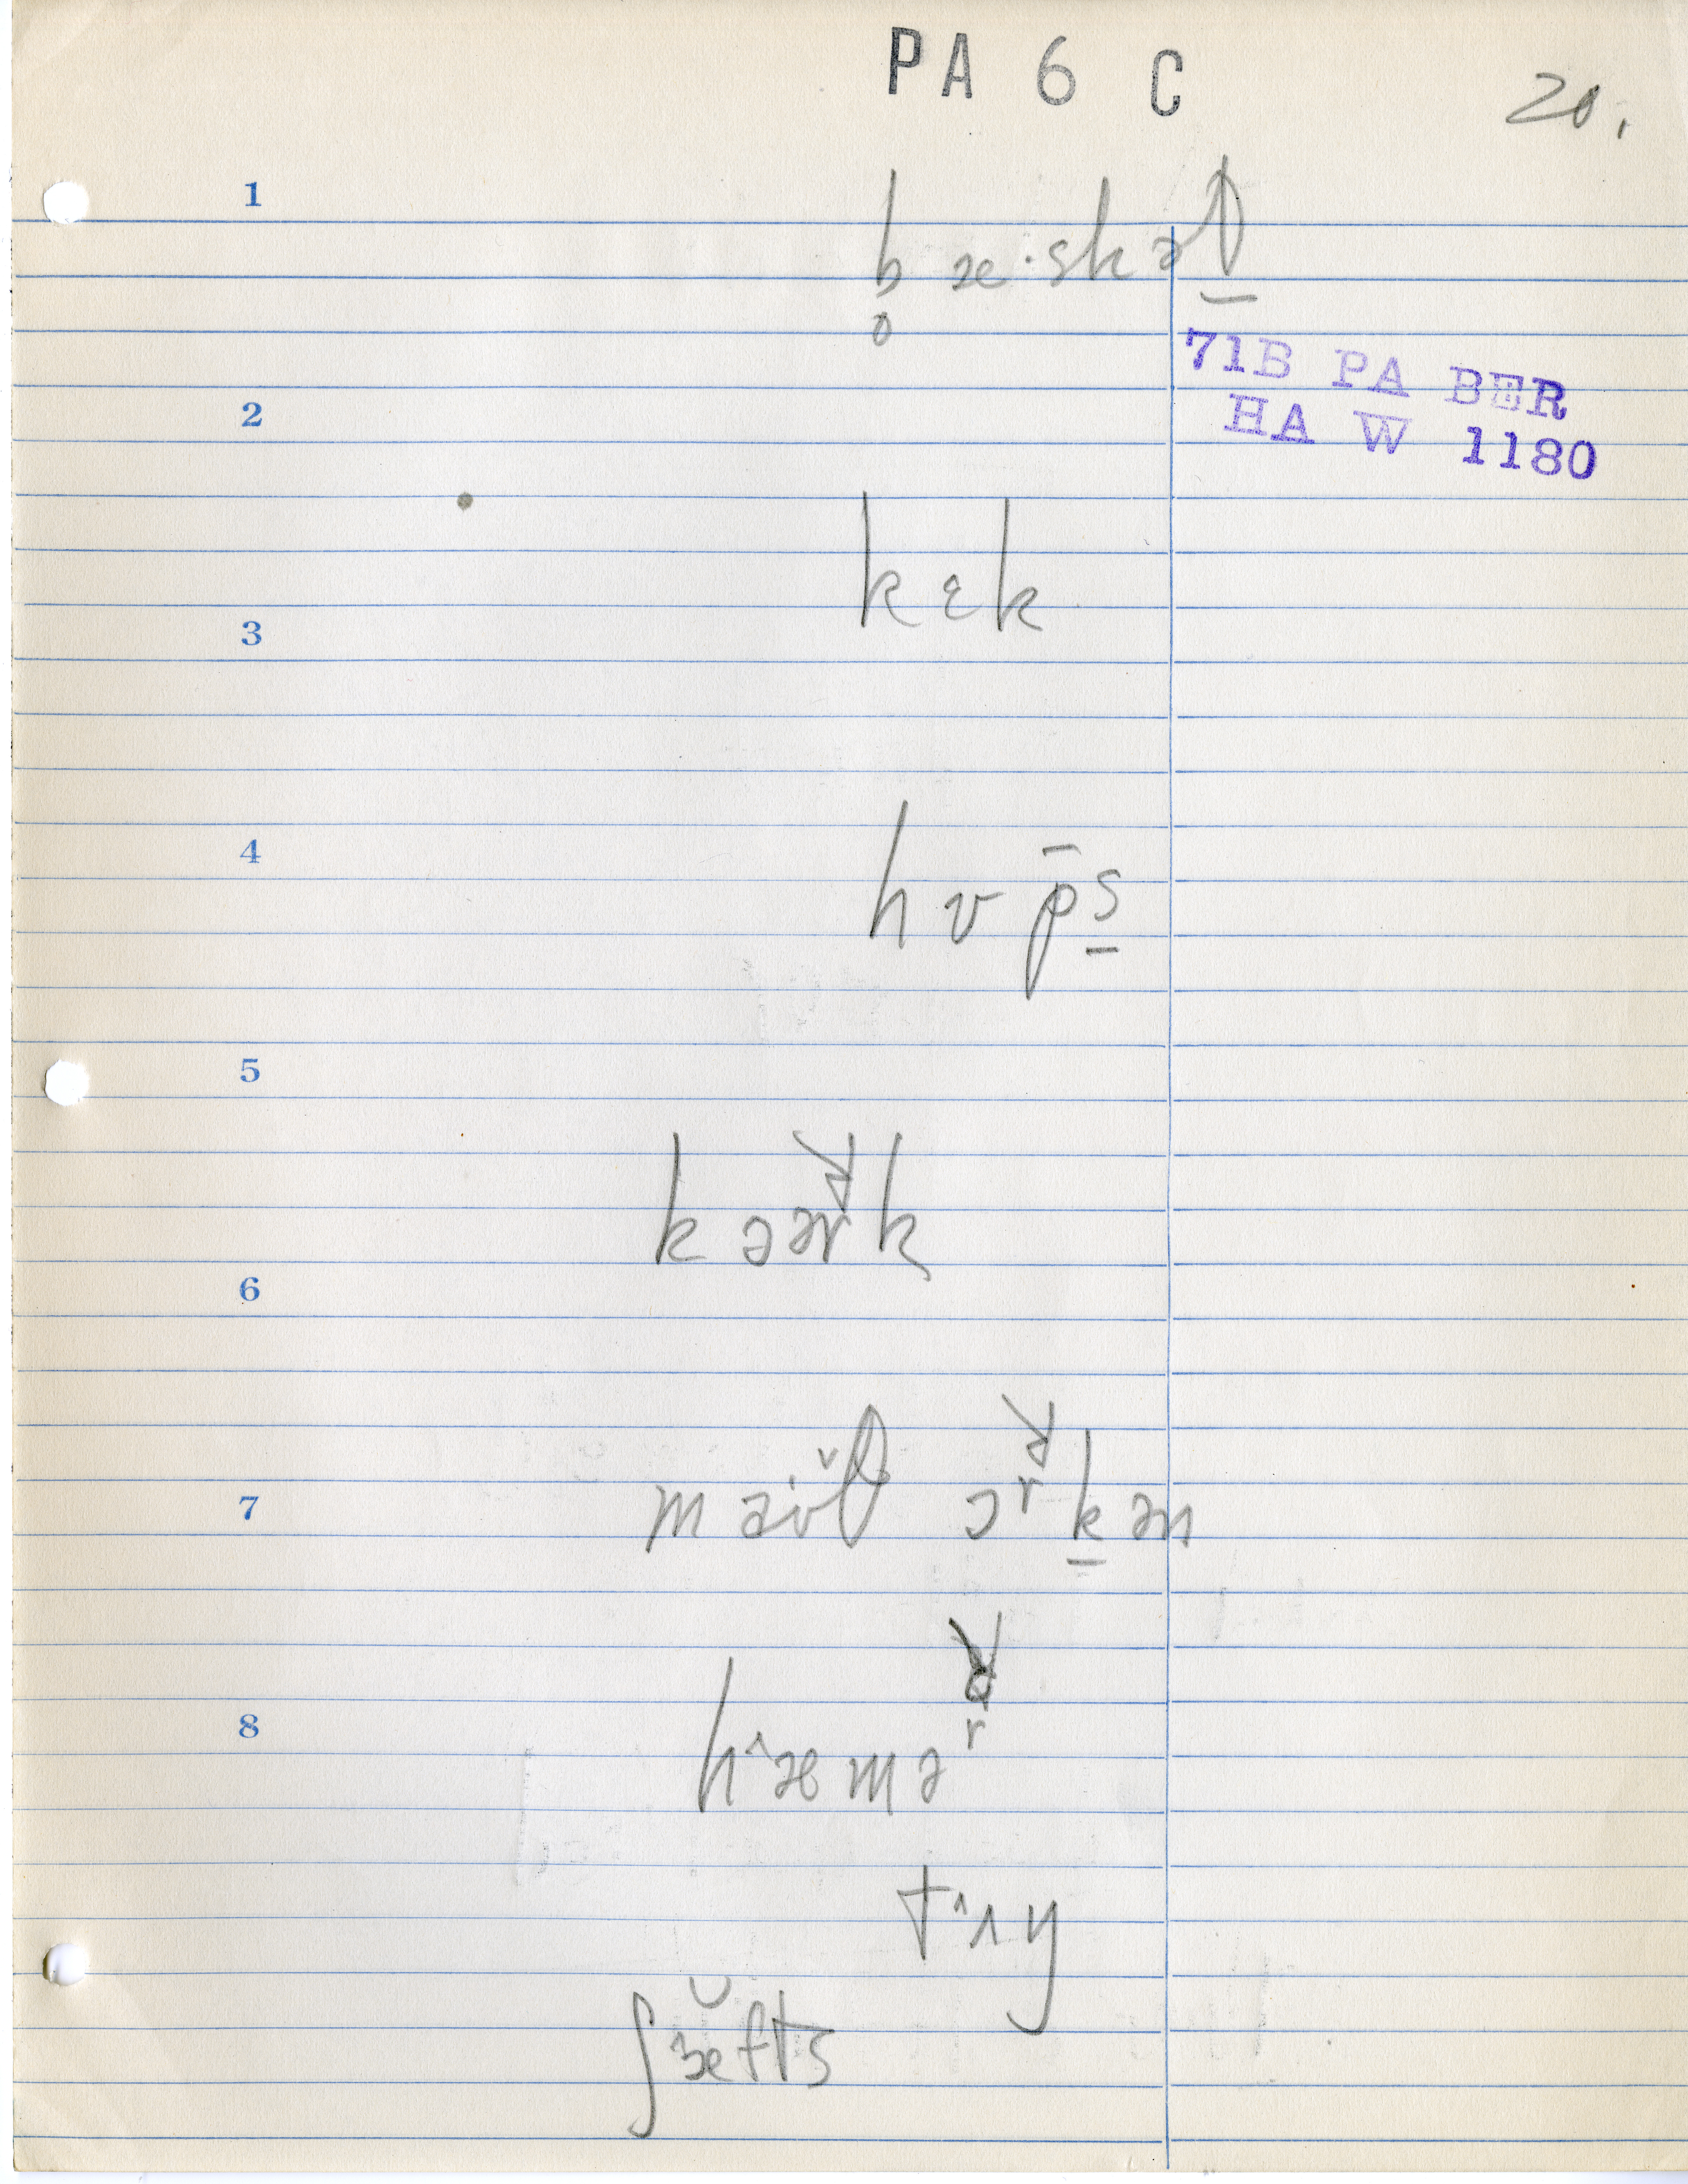 PA 6 C
20.
1
b̥ æ·skət̲
71B PA BER
HA W 1180
2
kɛk
3
4
h ʊ p̄s̲
5
k əər k
6
7
ɔʳk̲ən
8
h^æməʳ
t^ʌy
ʃæ̆fts